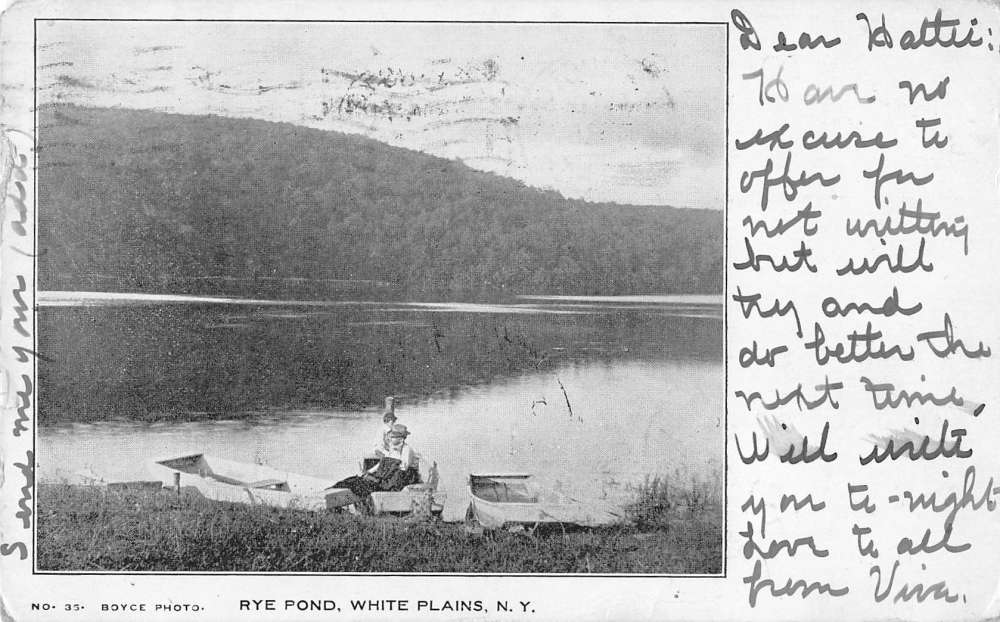 Dear Hattie:
Have no
excuse to
offer for
not writting
but will
try and
do better the
next time,
Will write
you to-night
Love to all
from Viva.
Send me your (adds)
NO. 35. BOYCE PHOTO. RYE POND, WHITE PLAINS, N. Y.